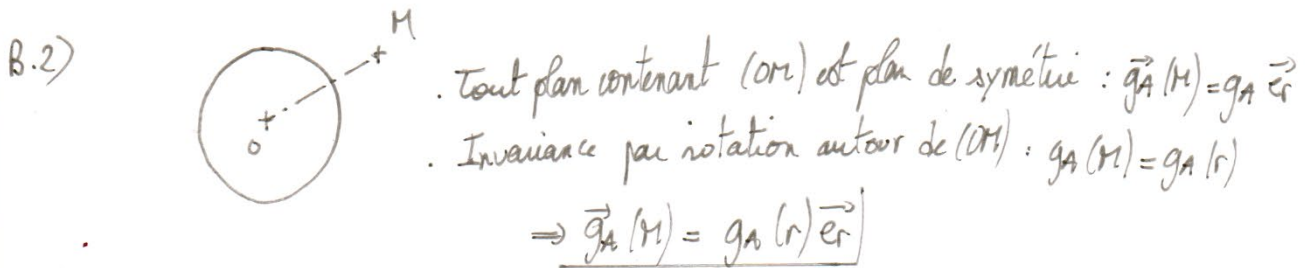 B.2)
M
O
. Tout plan contenant (OM) est plan de symétrie : \vec{g_A}(M) = g_A \vec{e_r}
. Invariance par rotation autour de (OM) : g_A(M) = g_A(r)
⇒ \vec{g_A}(M) = g_A(r) \vec{e_r}